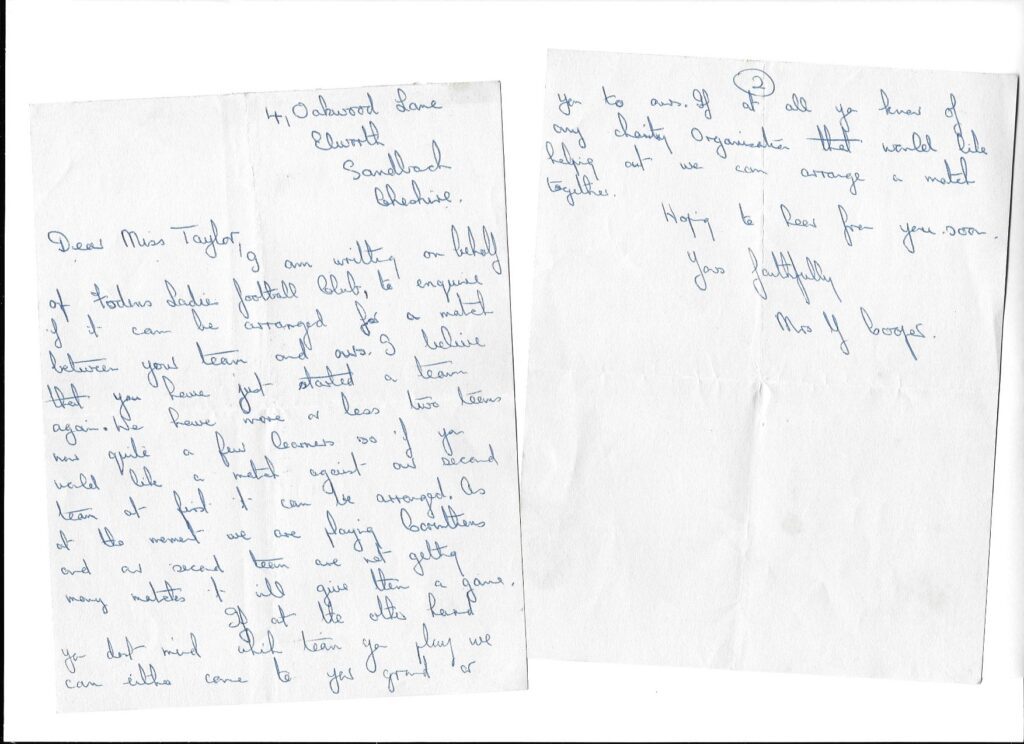 4, Oakwood Lane
Elworth
Sandbach
Cheshire.
Dear Miss Taylor,
I am writting on behalf
of Fodens Ladies football Club, to enquire
if it can be arranged for a match
between your team and ours. I believe
that you have just started a team
again. We have more or less two teams
now quite a few learners so if you
would like a match against our second
team at first it can be arranged. As
at the moment we are playing Corinthens
and our second team are not getting
many matches it will give them a game.
If at the other hand
you dont mind which team you play we
can either come to your ground or
2
you to ours. If at all you know of
any charity Organisation that would like
helping out we can arrange a match
together.
Hoping to hear from you soon.
Yours faithfully
Mrs Y Cooper.